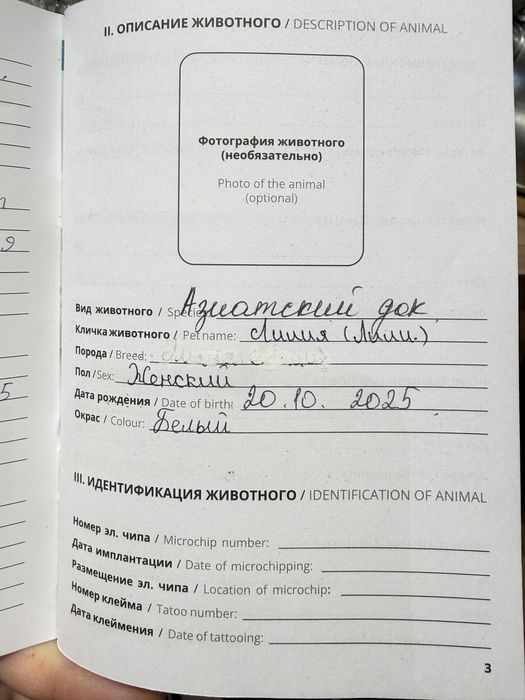 II. ОПИСАНИЕ ЖИВОТНОГО / DESCRIPTION OF ANIMAL
Фотография животного
(необязательно)
Photo of the animal
(optional)
Вид животного / Species: Азиатский док
Кличка животного / Pet name: Лилия (Лили.)
Порода / Breed:
Пол / Sex: Женский
Дата рождения / Date of birth: 20.10. 2025
Окрас / Colour: Белый
III. ИДЕНТИФИКАЦИЯ ЖИВОТНОГО / IDENTIFICATION OF ANIMAL
Номер эл. чипа / Microchip number:
Дата имплантации / Date of microchipping:
Размещение эл. чипа / Location of microchip:
Номер клейма / Tatoo number:
Дата клеймения / Date of tattooing:
3